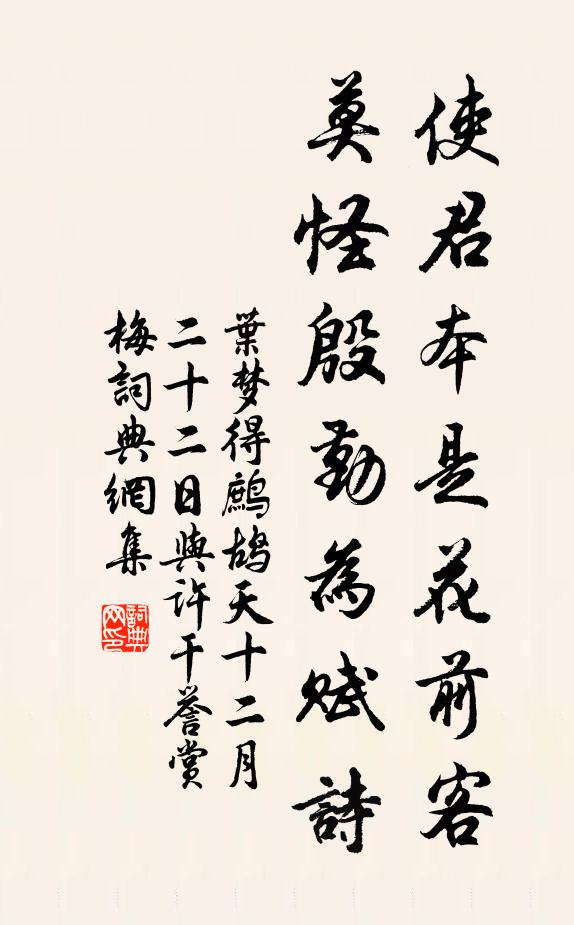 使君本是花前客
莫怪殷勤為賦詩
葉梦得鷓鴣天十二月
二十二日與許干譽賞
梅詞典網集
詞典网印